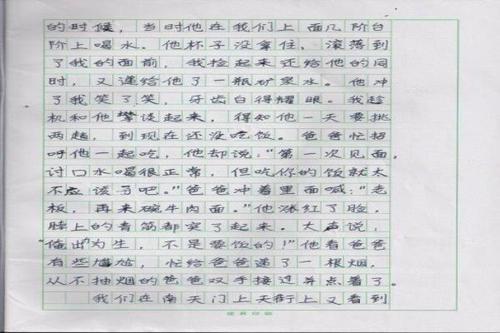 的时候，当时他在我们上面几阶台
阶上喝水。他杯子没拿住，滚落到
了我的面前，我捡起来还给他的同
时，又递给他了一瓶矿泉水。他冲
了我笑了笑，牙齿白得耀眼。我趁
机和他攀谈起来，得知他一天要挑
两趟，到现在还没吃饭。爸爸忙招
呼他一起吃，他却说："第一次见面，
讨口水喝很正常，但吃你的饭就太
不应该了吧。"爸爸冲着里面喊："老
板，再来碗牛肉面。"他涨红了脸，
脖上的青筋都突了起来。大声说：
"俺出力为生，不是要饭的！"他看爸爸
有些尴尬，忙给爸爸递了一根烟，
从不抽烟的爸爸双手接过并点着了。
我们在南天门上天街上又看到